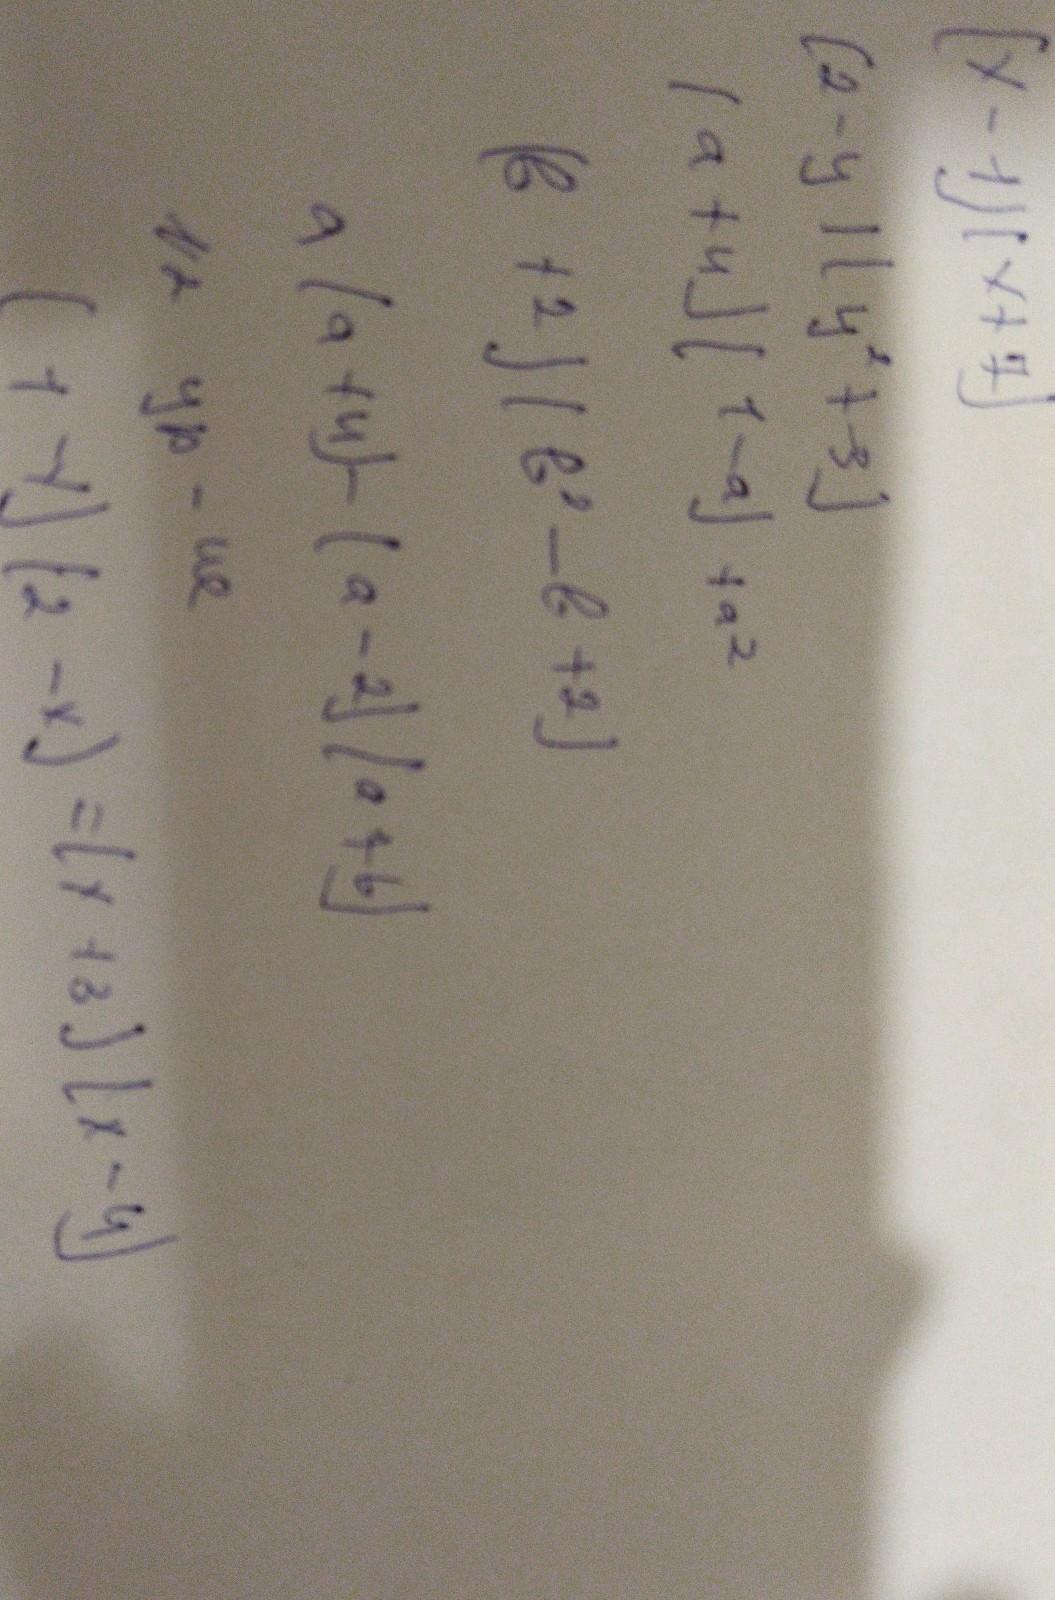 (x - 1)(x + 7)
(2 - y)(y² + 3)
(a + 4)(1 - a) + a²
(b + 2)(b² - b + 2)
a(a + 4) - (a - 2)(a + 6)
ур - ие
(1 - x)(2 - x) = (x + 3)(x - 4)